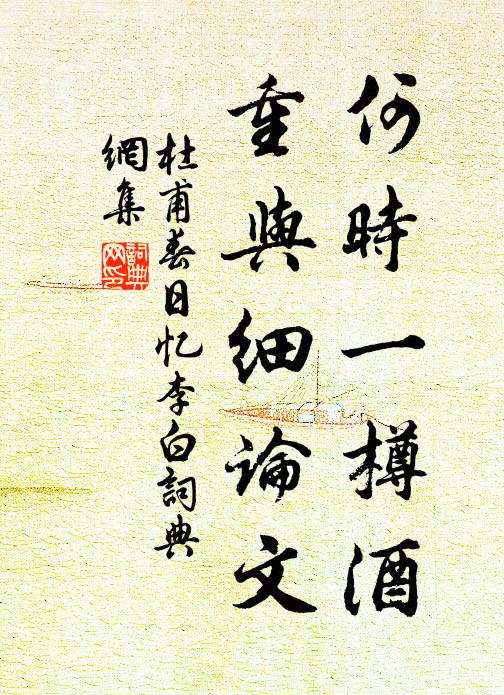 何時一樽酒
重與細論文
杜甫春日忆李白詞典
網集
詞典
网印